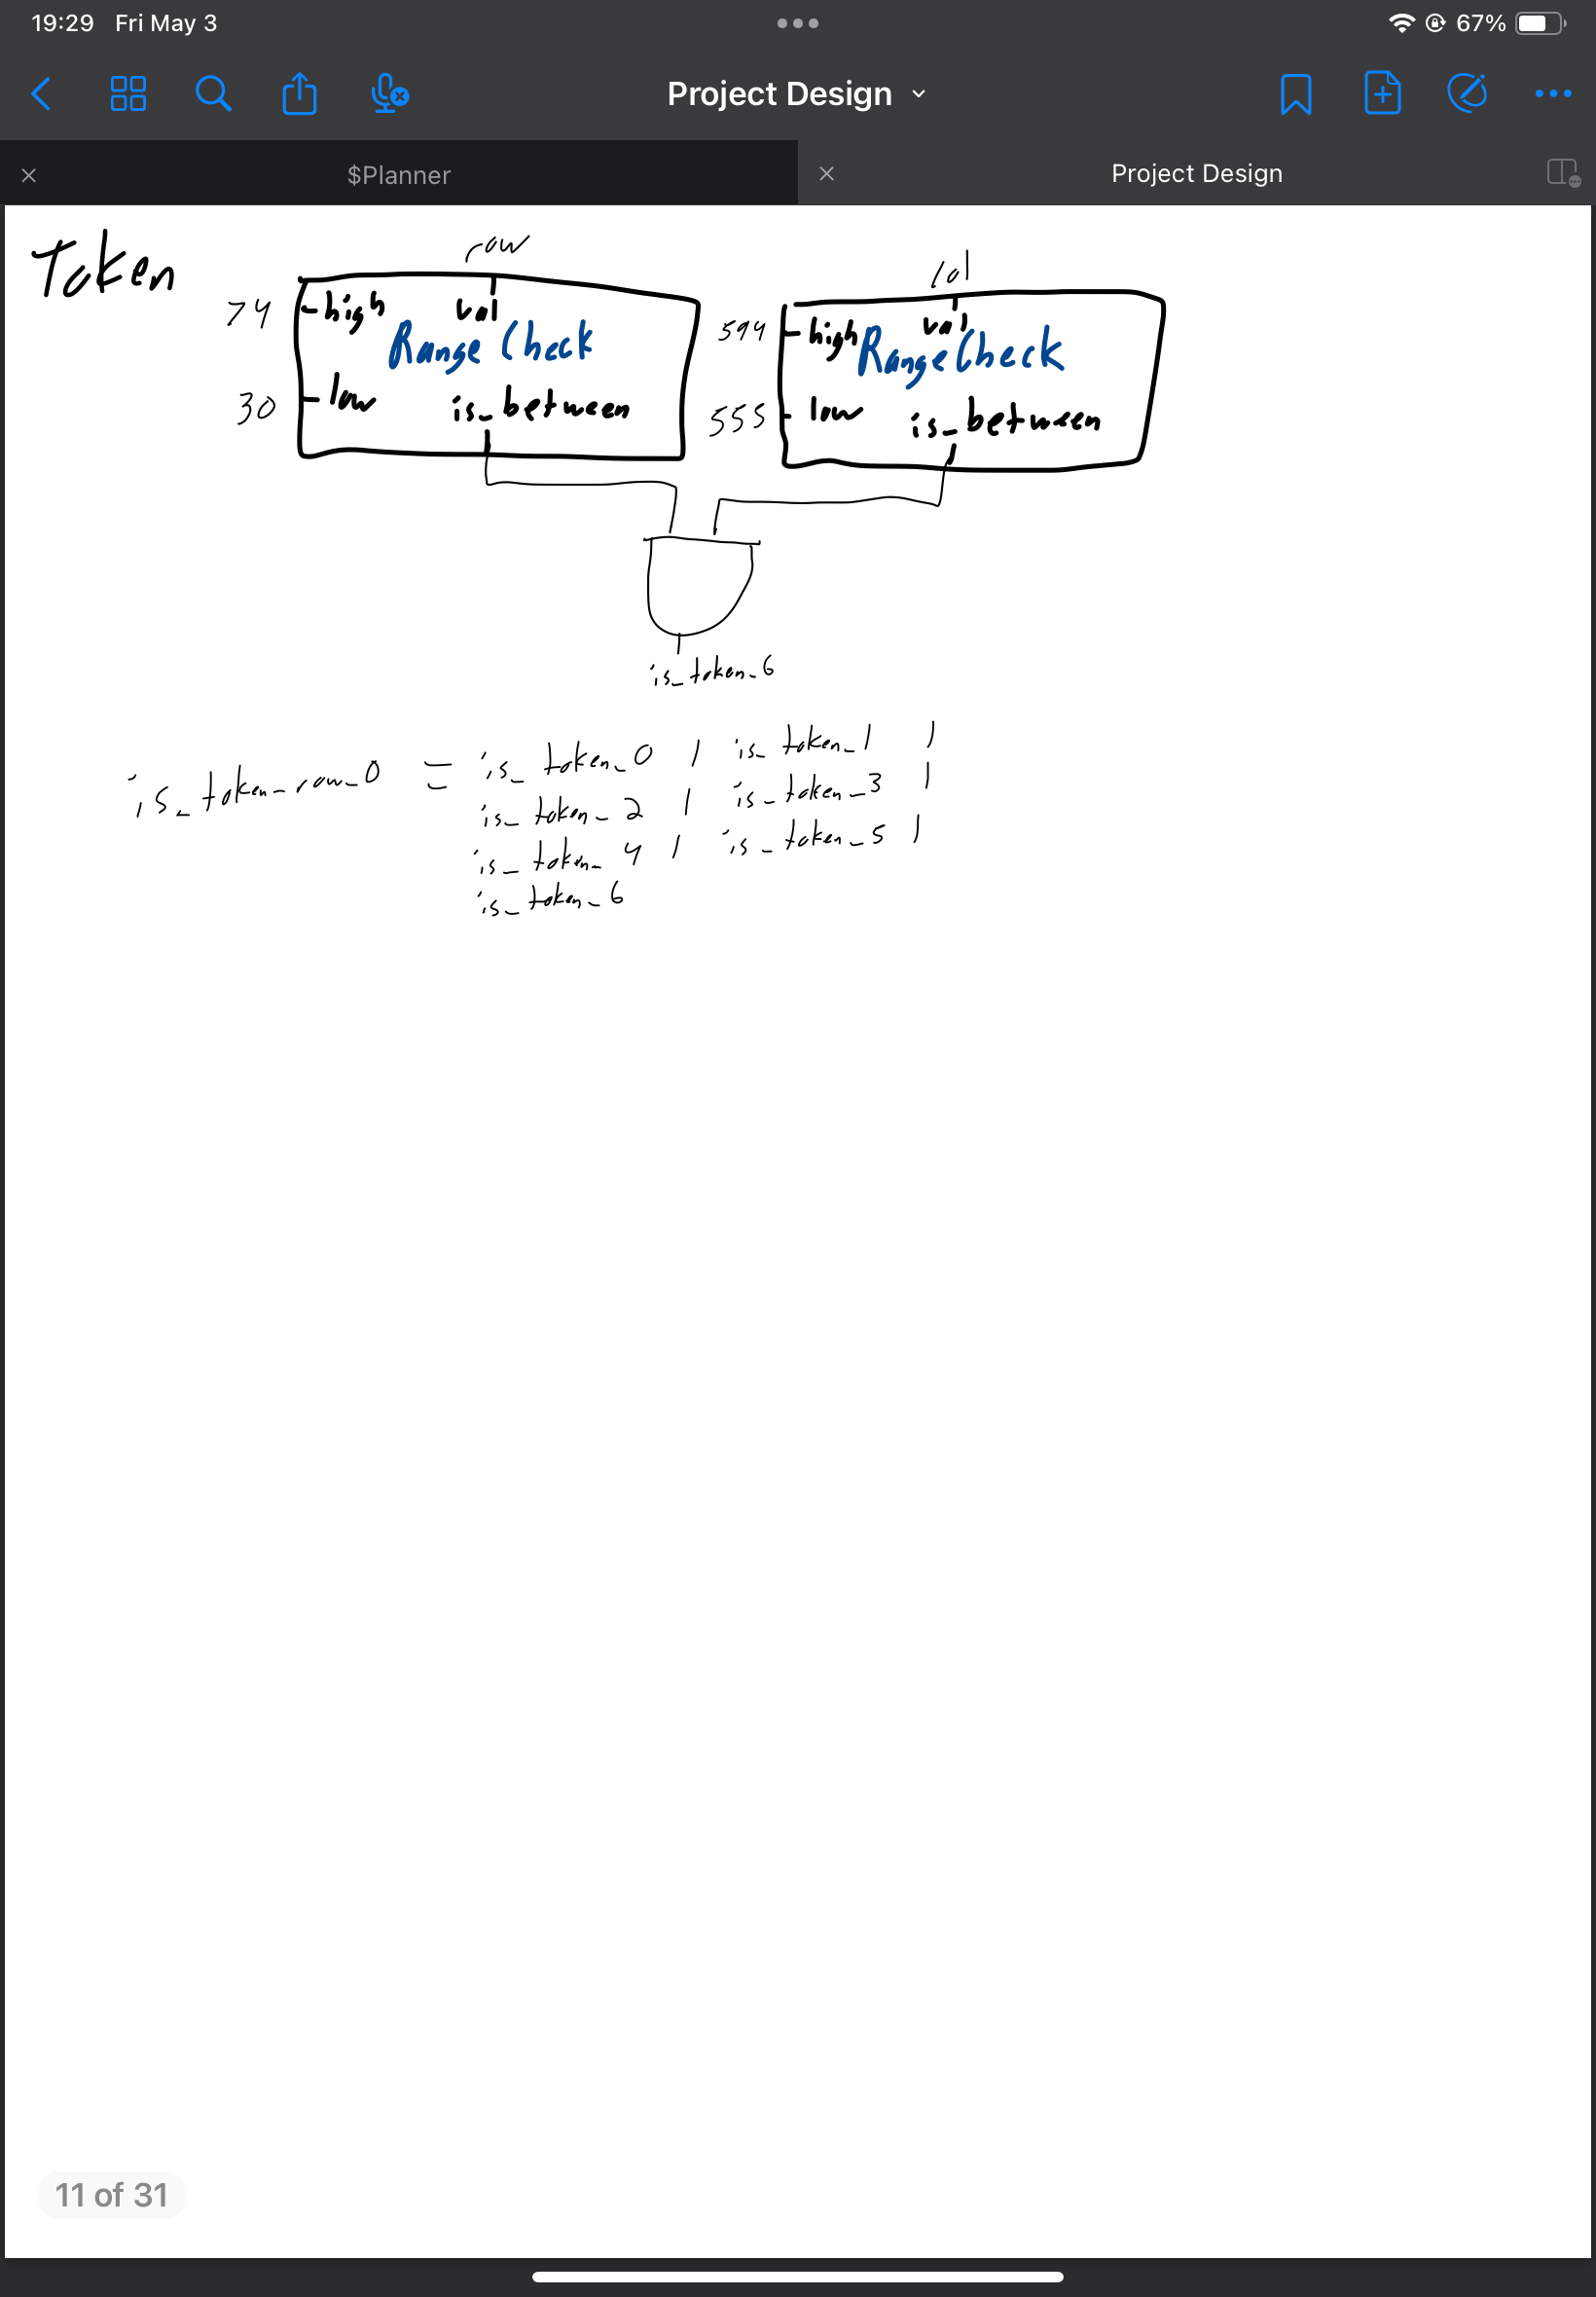 19:29 Fri May 3
67%
Project Design
$Planner
Project Design
Token
row
col
74
high
val
Range Check
30
low
is_between
594
high
val
Range Check
555
low
is_between
is_token_6
is_token_row_0 = is_token_0 | is_token_1 |
is_token_2 | is_token_3 |
is_token_4 | is_token_5 |
is_token_6
11 of 31